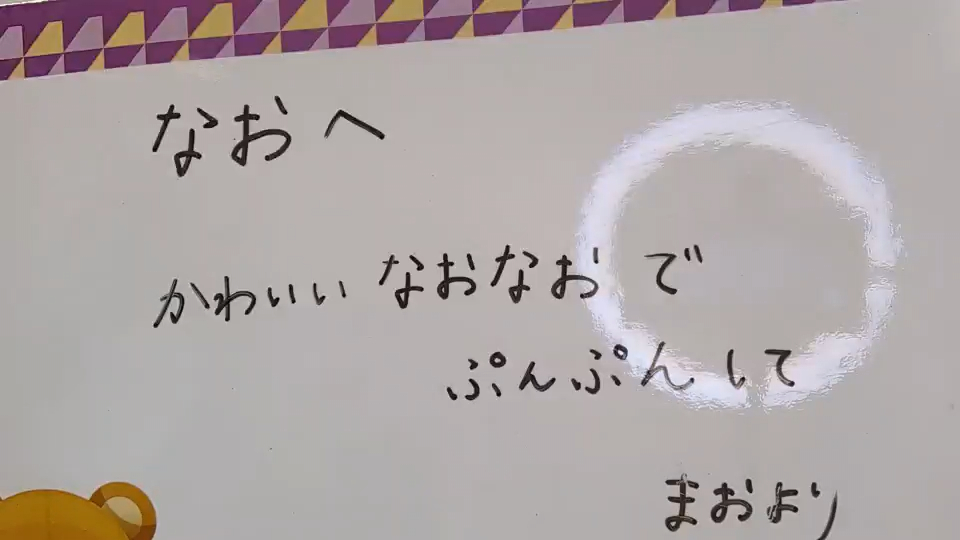 なおへ
かわいい なおなお で
ぷんぷん して
まおより